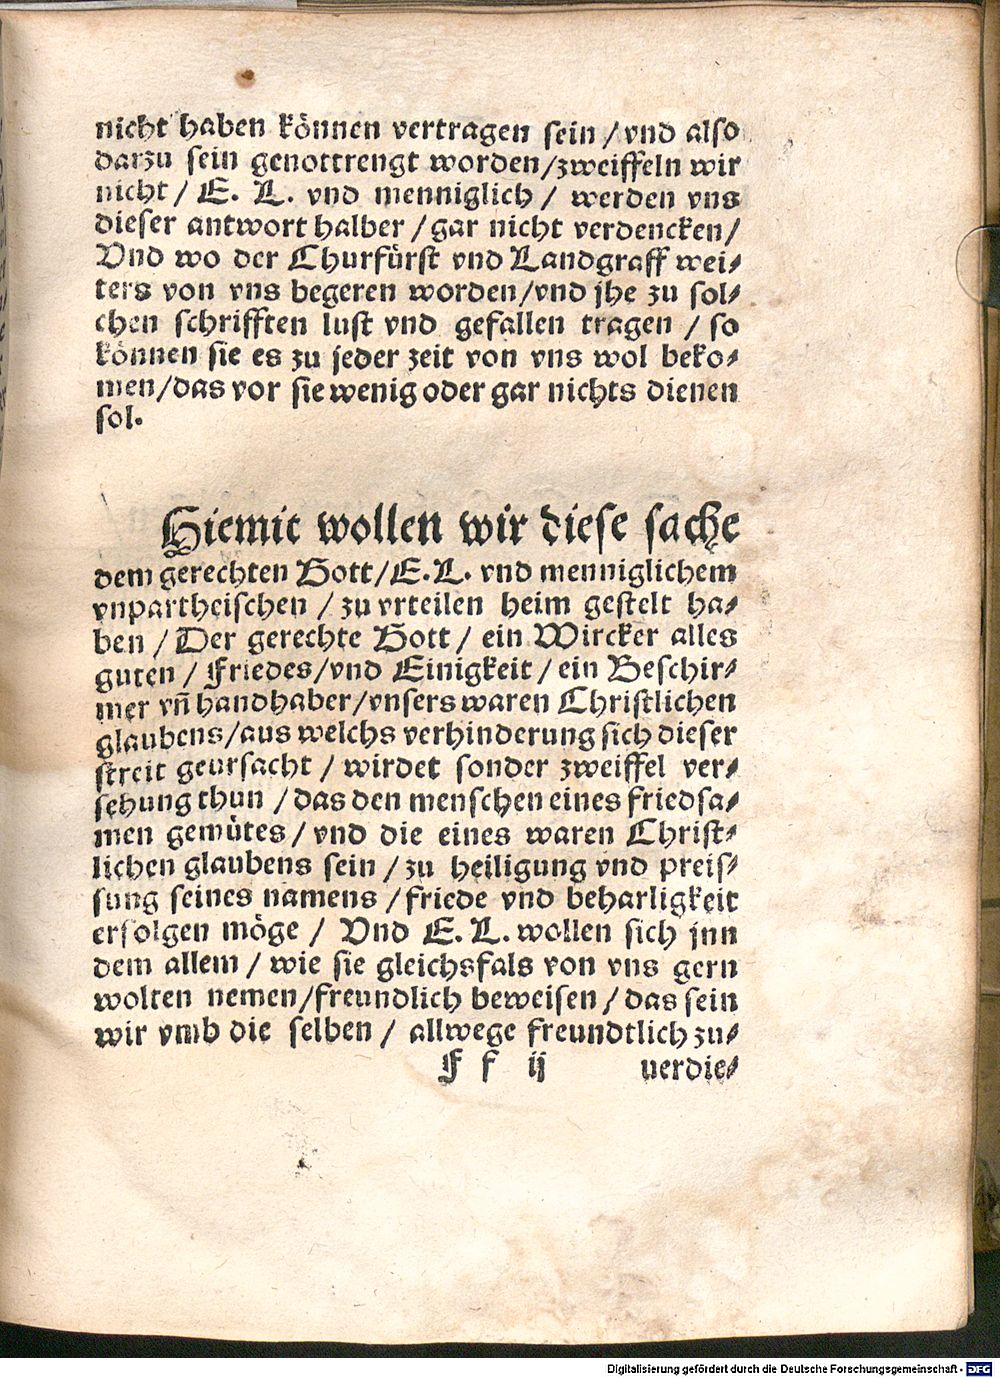 nicht haben können vertragen sein / vnd also
darzu sein genottrengt worden/zweiffeln wir
nicht / E. L. vnd menniglich / werden vns
dieser antwort halber / gar nicht verdencken/
Vnd wo der Churfürst vnd Landgraff wei⸗
ters von vns begeren worden/vnd jhe zu sol⸗
chen schrifften lust vnd gefallen tragen / so
können sie es zu jeder zeit von vns wol beko⸗
men/das vor sie wenig oder gar nichts dienen
sol.
Hiemit wollen wir diese sache
dem gerechten Gott/E.L. vnd menniglichem
vnpartheischen / zu vrteilen heim gestelt ha⸗
ben / Der gerechte Gott / ein Wircker alles
guten / Friedes/vnd Einigkeit / ein Beschir⸗
mer vn̄ handhaber/vnsers waren Christlichen
glaubens/aus welchs verhinderung sich dieser
streit geursacht / wirdet sonder zweiffel ver⸗
sehung thun / das den menschen eines friedsa⸗
men gemütes / vnd die eines waren Christ⸗
lichen glaubens sein / zu heiligung vnd preis⸗
sung seines namens / friede vnd beharligkeit
erfolgen möge / Vnd E. L. wollen sich jnn
dem allem / wie sie gleichsfals von vns gern
wolten nemen/freundlich beweisen / das sein
wir vmb die selben / allwege freundtlich zu⸗
F f ij uerdie⸗
Digitalisierung gefördert durch die Deutsche Forschungsgemeinschaft - DFG